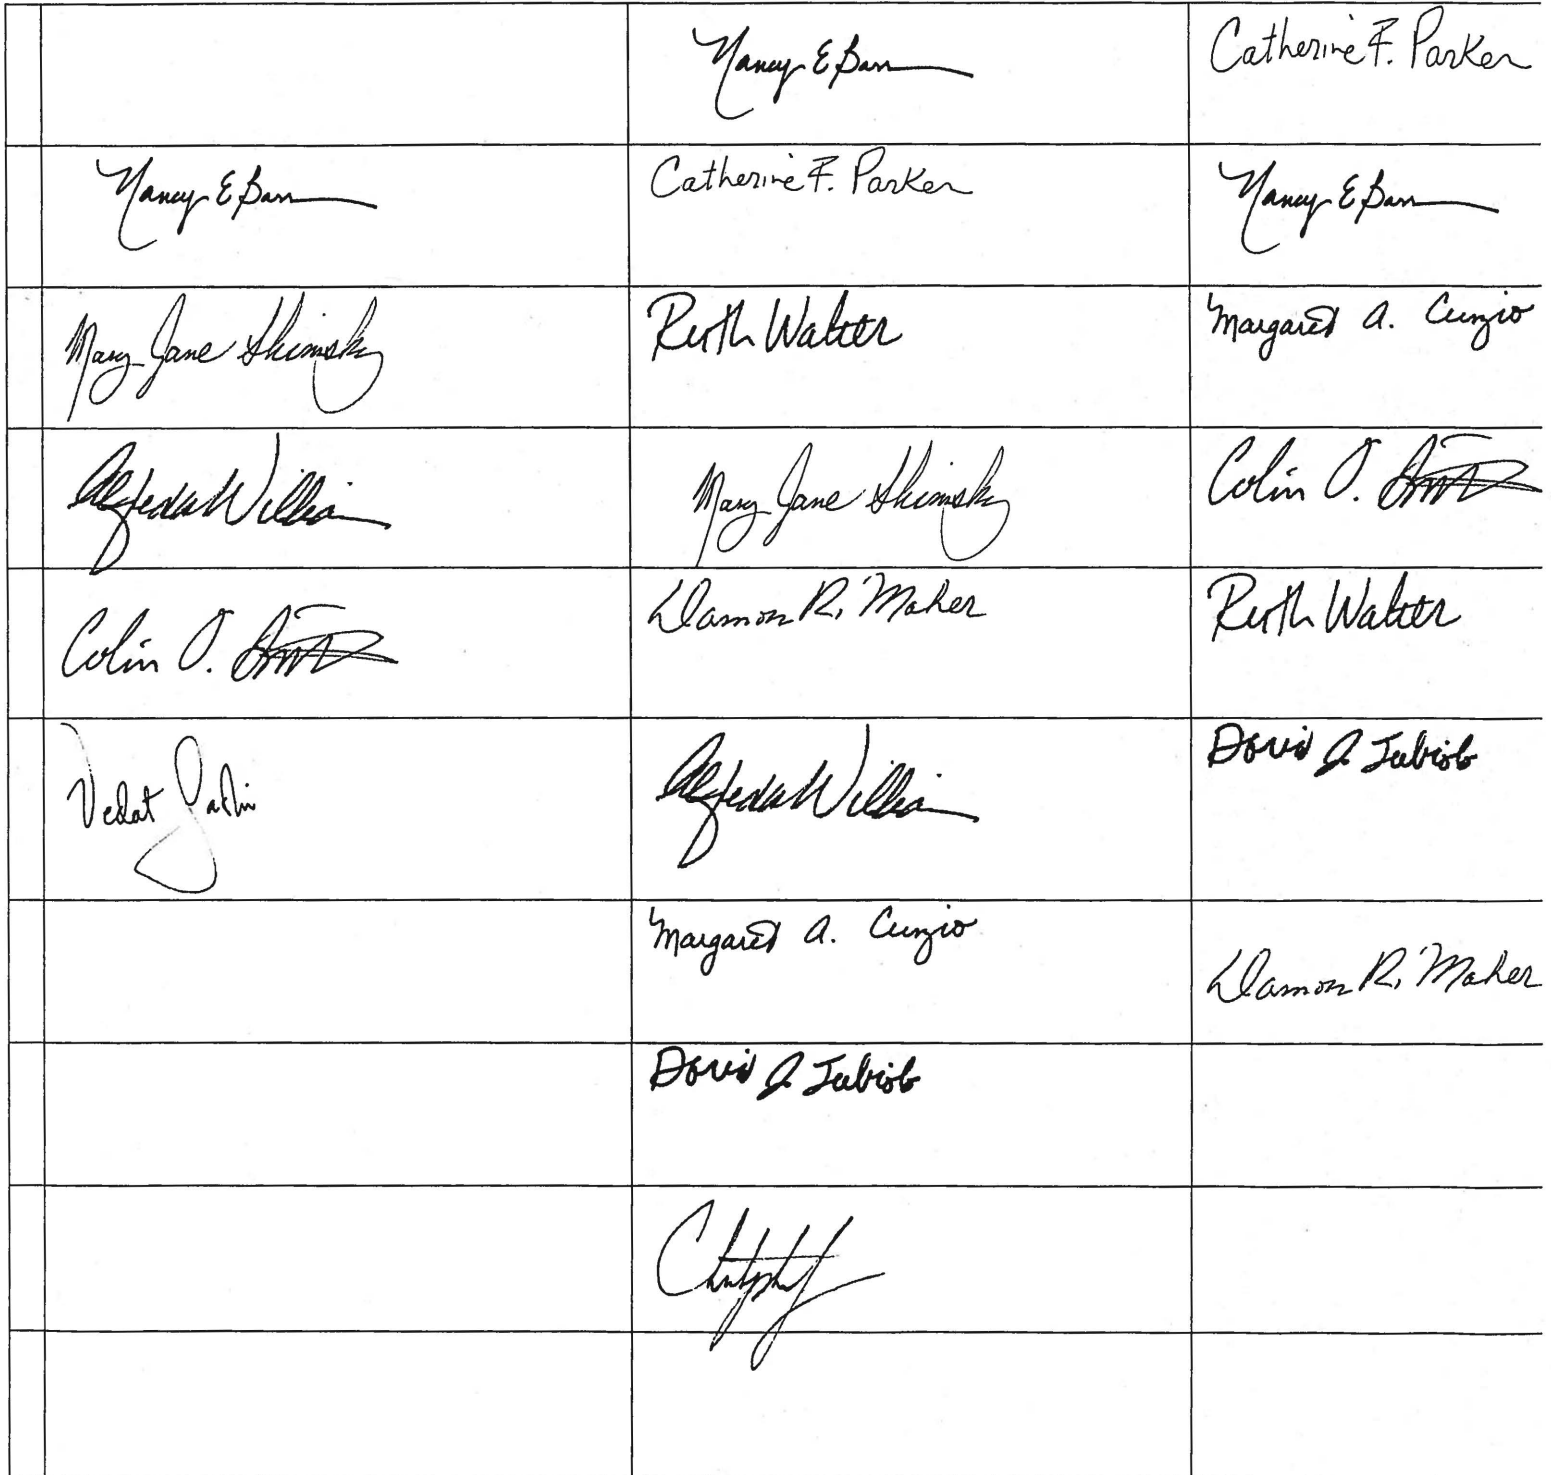 Nancy E Barr Catherine F. Parker
Nancy E Barr Catherine F. Parker Nancy E Barr
Mary Jane Shimsky Ruth Walter Margaret A. Cunzio
Alfreda Williams Mary Jane Shimsky Colin O. Smith
Colin O. Smith Damon R. Maher Ruth Walter
Vedat Gashi Alfreda Williams
Margaret A. Cunzio Damon R. Maher